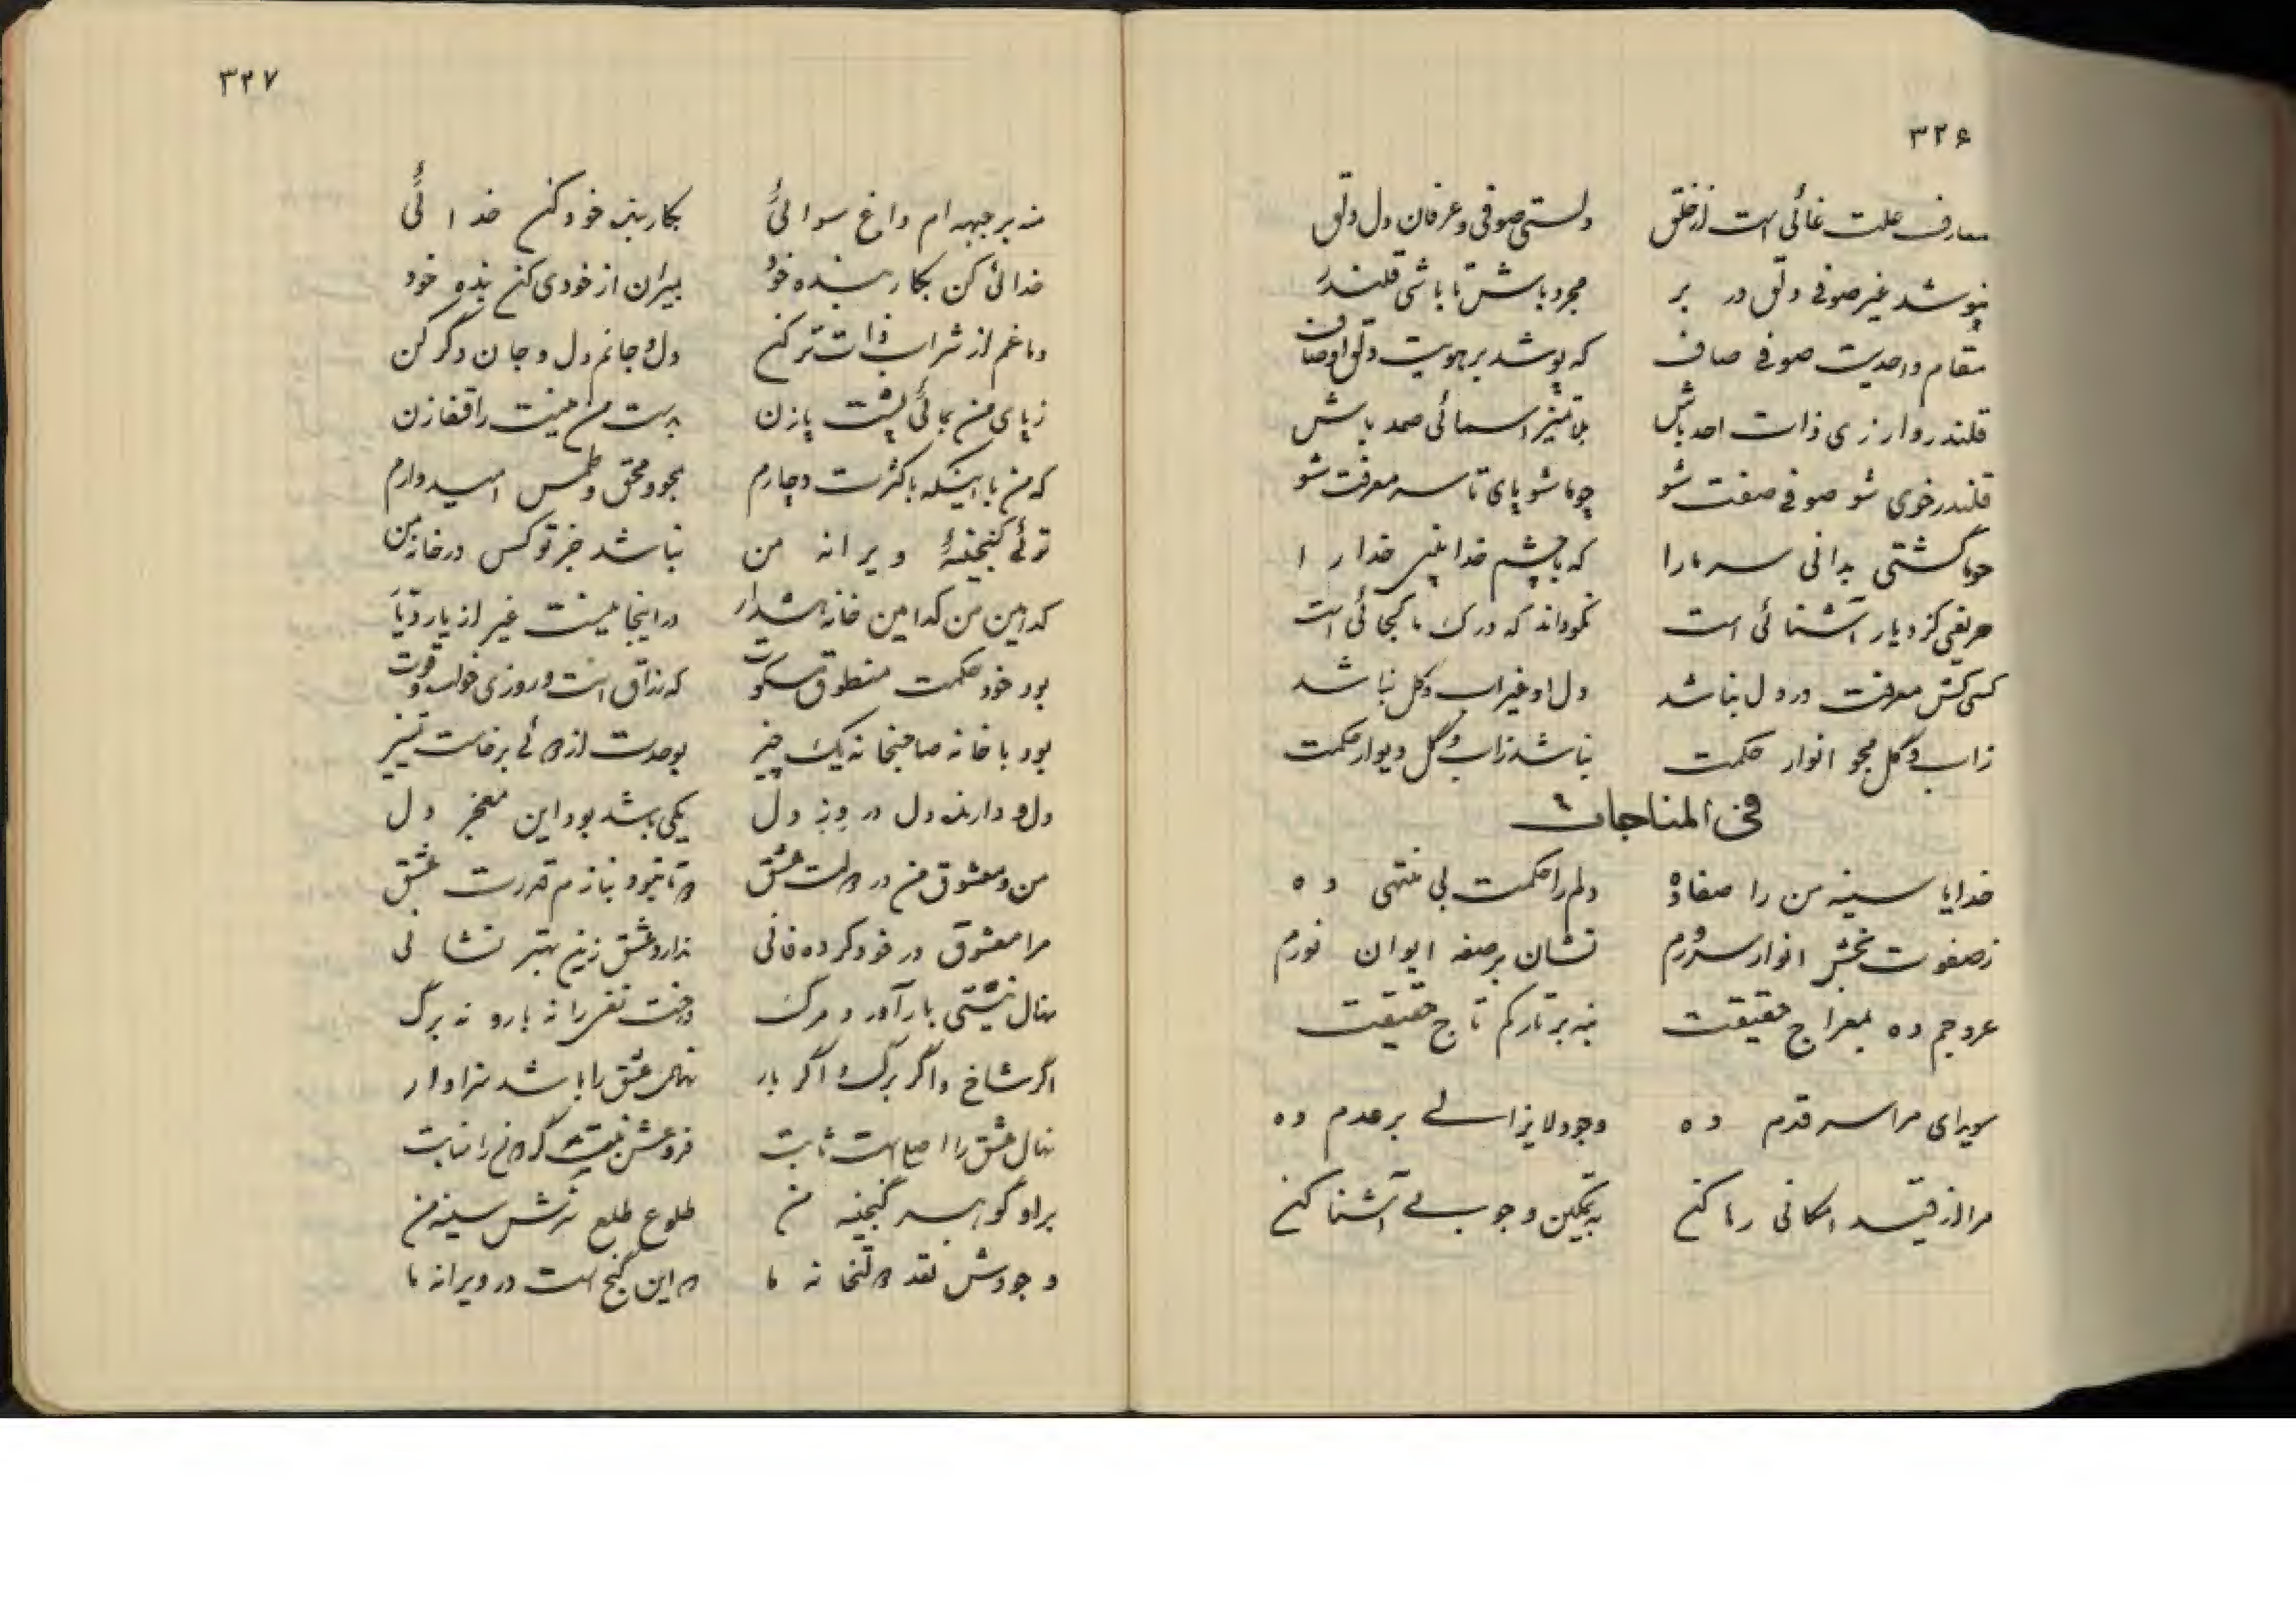 ۳۲۶
معارف علت غائی است از خلق دلستی صوفی و عرفان دل دلق
نپوشد غیر صوفی دلق در بر مجرد باش تا باشی قلندر
مقام واحدیت صوفی صاف که پوشد بر هویت دلق اوصاف
قلندروار زی ذات احد باش بلا تمیز اسمائی صمد باش
قلندر خوی شو صوفی صفت شو چو ما شو پای تا سر معرفت شو
چو ما گشتی بدانی سر ما را که با چشم خدا بینی خدا را
حریفی کز دیار آشنائی است نکو داند که درک ما کجائی است
کسی کش معرفت در دل نباشد دل او غیر آب و گل نباشد
ز آب و گل مجو انوار حکمت نباشد ز آب و گل دیوار حکمت
فی المناجات
خدایا سینه من را صفا ده دلم را حکمت بی منتهی ده
ز صفوت بخش انوار سرورم نشان بر صفه ایوان نورم
عروجم ده بمعراج حقیقت بنه بر تارکم تاج حقیقت
سویدای مرا سر قدم ده وجود لایزالی بر عدم ده
مرا از قید امکانی رها کن به تمکین وجوبی آشنا کن
۳۲۷
منه بر جبهه ام داغ سوائی بکار بنده خود کن خدائی
خدائی کن بکار بنده خود بمیران از خودی کن بنده خود
دماغم از شراب ذات تر کن دل و جانم دل و جان دگر کن
ز پای من بجائی پشت پا زن بدست من منیت را قفا زن
که من با اینکه با کثرت دچارم بمحو و محق و طمس امیدوارم
توئی گنجینهٔ ویرانه من نباشد جز تو کس در خانه من
کدامین من کدامین خانه هشدار در اینجا نیست غیر از یار دیار
بود خود حکمت منطوق سکوت که رزاق است و روزی خواب و قوت
بود با خانه صاحبخانه یک چیز بوحدت از دوئی برخاست تمیز
دل و دارنده دل در بر دل یکی باشد بود این معجز دل
من و معشوق من در دولت عشق دوتا نبود بنازم قدرت عشق
مرا معشوق در خود کرده فانی ندارد عشق زین بهتر نشانی
نهال نیستی بار آورد مرگ درخت نفس را نه بار و نه برگ
اگر شاخ و اگر برگ و اگر بار نهال عشق را باشد سزاوار
نهال عشق را اصل است ثابت
بر او گوهر گنجینه من طلوع طلع نورش سینه من
وجودش نقد دولتخانه ما در این گنج است در ویرانه ما